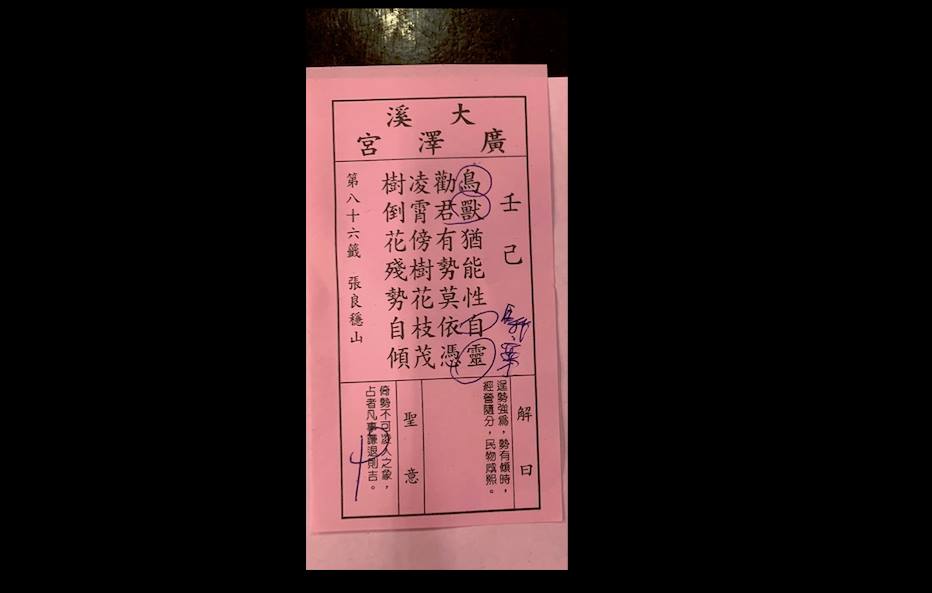 大溪
廣澤宮
壬己
鳥獸猶能性自靈
勸君有勢莫依憑
凌霄傍樹花枝茂
樹倒花殘勢自傾
第八十六籤 張良穩山
解曰
逞勢強為，勢有傾時，
經營隨分，民物咸熙。
聖意
倚勢不可凌人之象，
占者凡事謙退則吉。